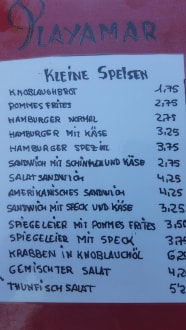 PLAYAMAR
KLEINE SPEISEN
KNOBLAUCHBROT 1,75
POMMES FRITES 2,75
HAMBURGER NORMAL 2,75
HAMBURGER MIT KÄSE 3,25
HAMBURGER SPEZIAL 3,75
SANDWICH MIT SCHINKEN UND KÄSE 2,75
SALAT SANDWICH 4,25
AMERIKANISCHES SANDWICH 4,25
SANDWICH MIT SPECK UND KÄSE 3,25
SPIEGELEIER MIT POMMES FRITES 3,50
SPIEGELEIER MIT SPECK 3,75
KRABBEN IN KNOBLAUCHÖL 6,25
GEMISCHTER SALAT 4,25
THUNFISCH SALAT